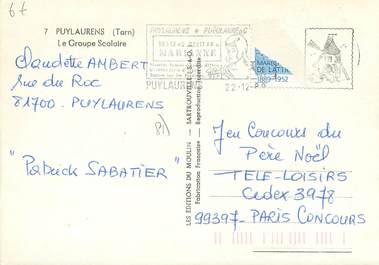 67
7 PUYLAURENS (Tarn)
Le Groupe Scolaire
Claudette AMBERT
rue du Roc
81700 - PUYLAURENS
81)
"Patrick SABATIER"
LES EDITIONS DU MOULIN - SARTROUVILLE
Fabrication Française - Reproduction
PUYLAURENS
MARIANNE
DE LATTRE
1889-1952
22-12
Jeu Concours du
Père Noël
TELE-LOISIRS
Cedex 3978
99397 - PARIS CONCOURS